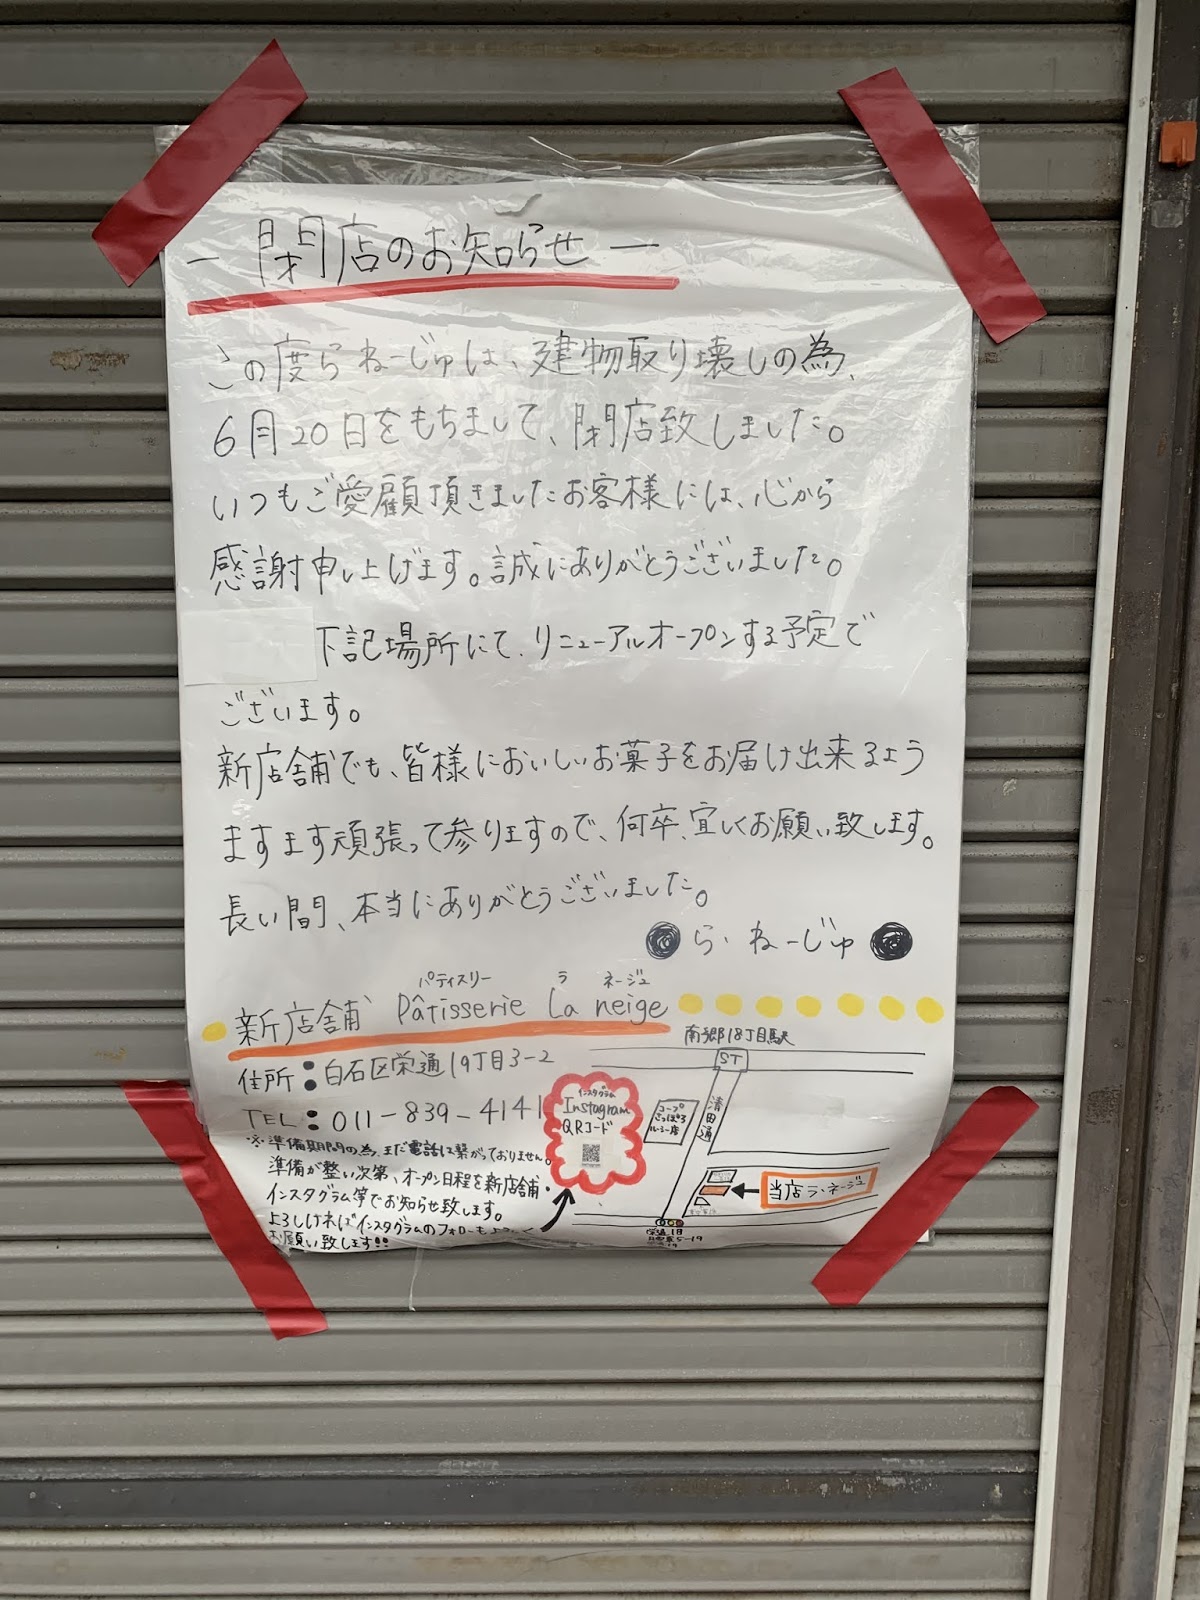 ― 閉店のお知らせ ―
この度らねーじゅは、建物取り壊しの為、
6月20日をもちまして、閉店致しました。
いつもご愛顧頂きましたお客様には、心から
感謝申し上げます。誠にありがとうございました。
下記場所にて、リニューアルオープンする予定で
ございます。
新店舗でも、皆様においしいお菓子をお届け出来るよう
ますます頑張って参りますので、何卒、宜しくお願い致します。
長い間、本当にありがとうございました。
● ら・ねーじゅ ●
パティスリー ラ ネージュ
新店舗 Pâtisserie La neige
住所:白石区栄通19丁目3-2
TEL:011-839-4141
※準備期間の為、まだ電話は繋がっておりません。
準備が整い次第、オープン日程を新店舗・
インスタグラム等でお知らせ致します。
よろしければインスタグラムのフォローも
お願い致します!!
インスタグラム
Instagram
QRコード
南郷18丁目駅
ST
清田通
コープ
さっぽろ
ルーシー店
当店 ラ・ネージュ